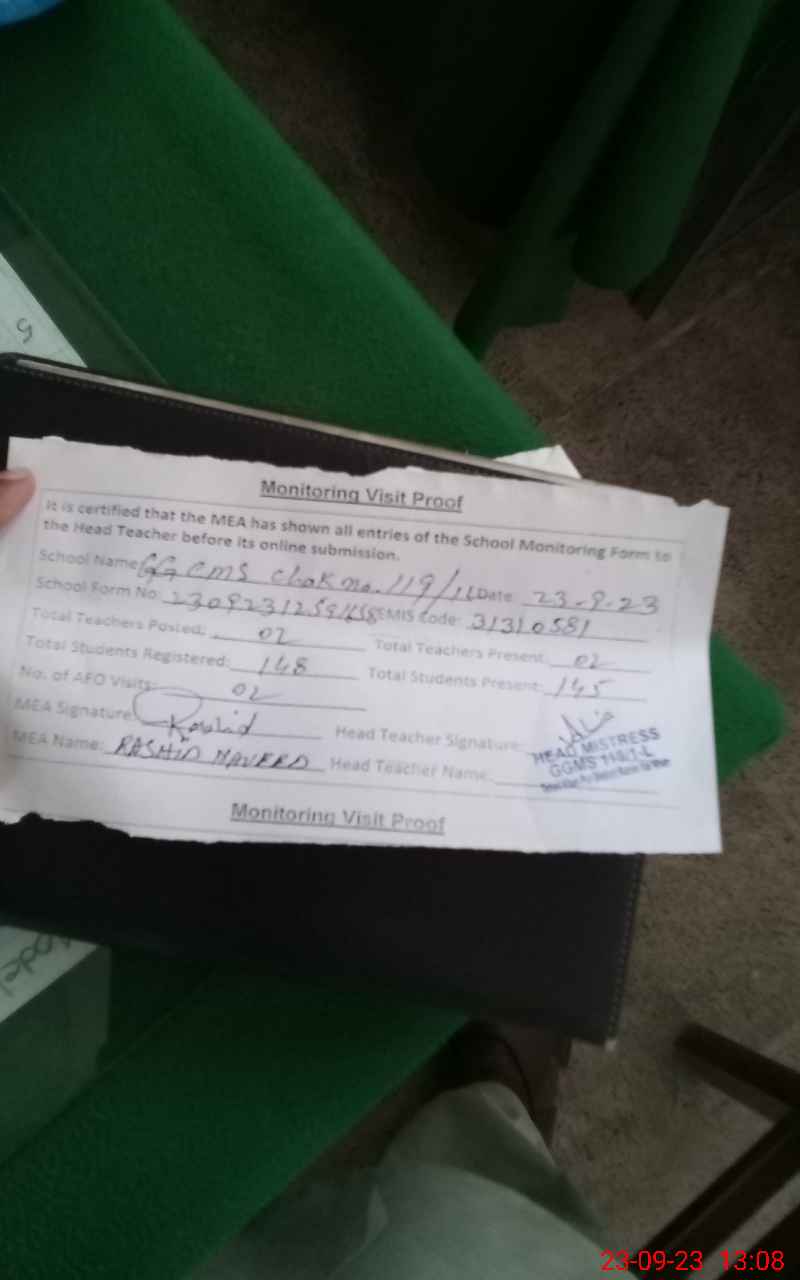 Monitoring Visit Proof
It is certified that the MEA has shown all entries of the School Monitoring Form to
the Head Teacher before its online submission.
School Name GGCMS Chak no. 119/1L Date: 23-9-23
School Form No: EMIS Code: 31310581
Total Teachers Posted: 02 Total Teachers Present: 02
Total Students Registered: 148 Total Students Present: 145
No. of AEO Visits: 02
MEA Signature: Rashid Head Teacher Signature:
MEA Name: RASHID NAVEED Head Teacher Name:
HEAD MISTRESS
GGMS
Monitoring Visit Proof
5
Model
23-09-23 13:08